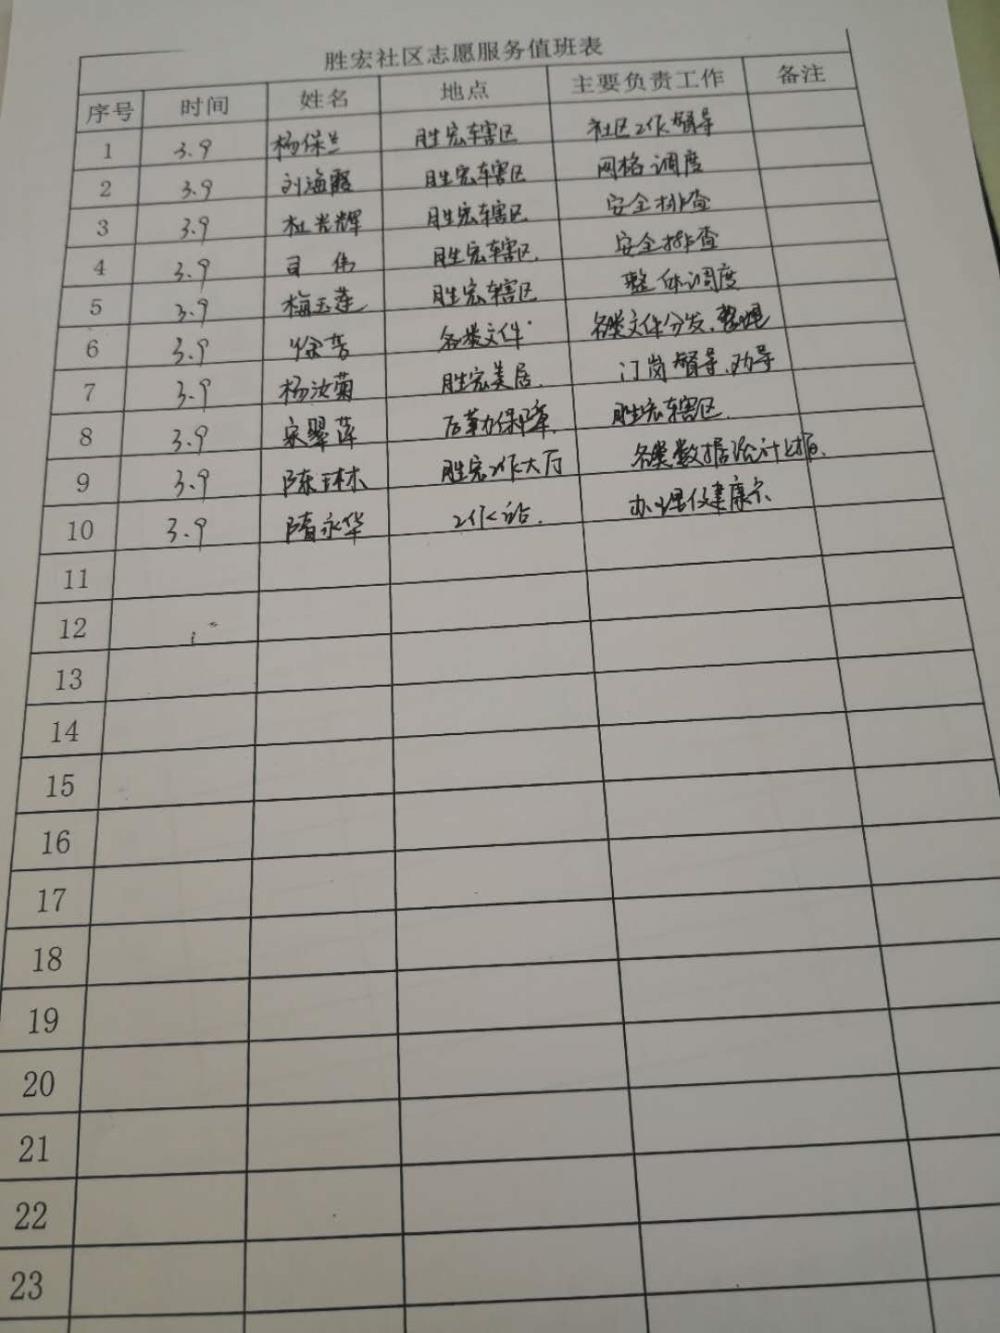 胜宏社区志愿服务值班表
序号 时间 姓名 地点 主要负责工作 备注
1 3.9 杨保兰 胜宏辖区 社区工作督导
2 3.9 刘海霞 胜宏辖区 网格调度
3 3.9 杜光辉 胜宏辖区 安全排查
4 3.9 司伟 胜宏辖区. 安全排查
5 3.9 梅玉莲 胜宏辖区 整体调度
6 3.9 徐芳 各类文件 各类文件分发、整理
7 3.9 杨汝菊 胜宏美居. 门岗督导、劝导
8 3.9 宋翠莲 后勤保障. 胜宏辖区.
9 3.9 陈琳 胜宏工作大厅 各类数据统计上报.
10 3.9 隋永华 工作站. 办理健康
11
12
13
14
15
16
17
18
19
20
21
22
23